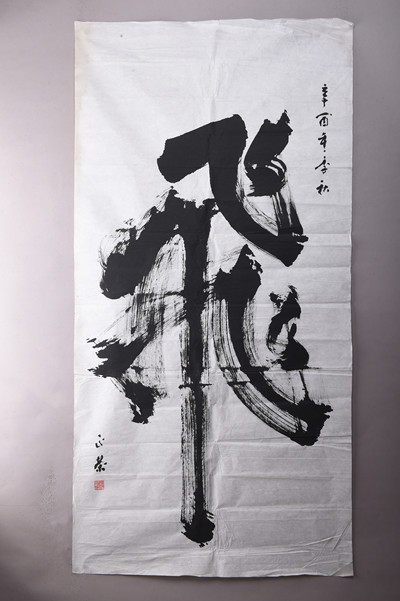 辛酉年季秋
飛
正榮